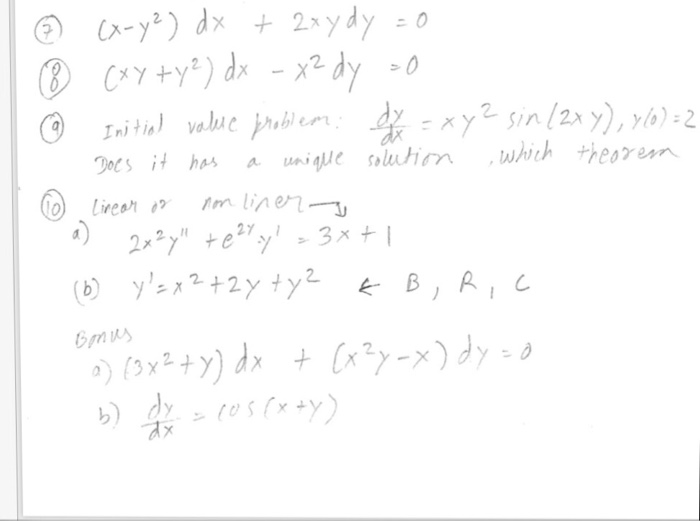 ⑦ (x-y²) dx + 2xy dy = 0
⑧ (xy + y²) dx - x² dy = 0
⑨ Initial value problem: dy/dx = xy² sin(2xy), y(0)=2
Does it has a unique solution , which theorem
⑩ Linear or non liner →
a) 2x²y" + e^{2y}.y' = 3x + 1
(b) y' = x² + 2y + y² ← B, R, C
Bonus
a) (3x² + y) dx + (x²y - x) dy = 0
b) dy/dx = cos(x + y)